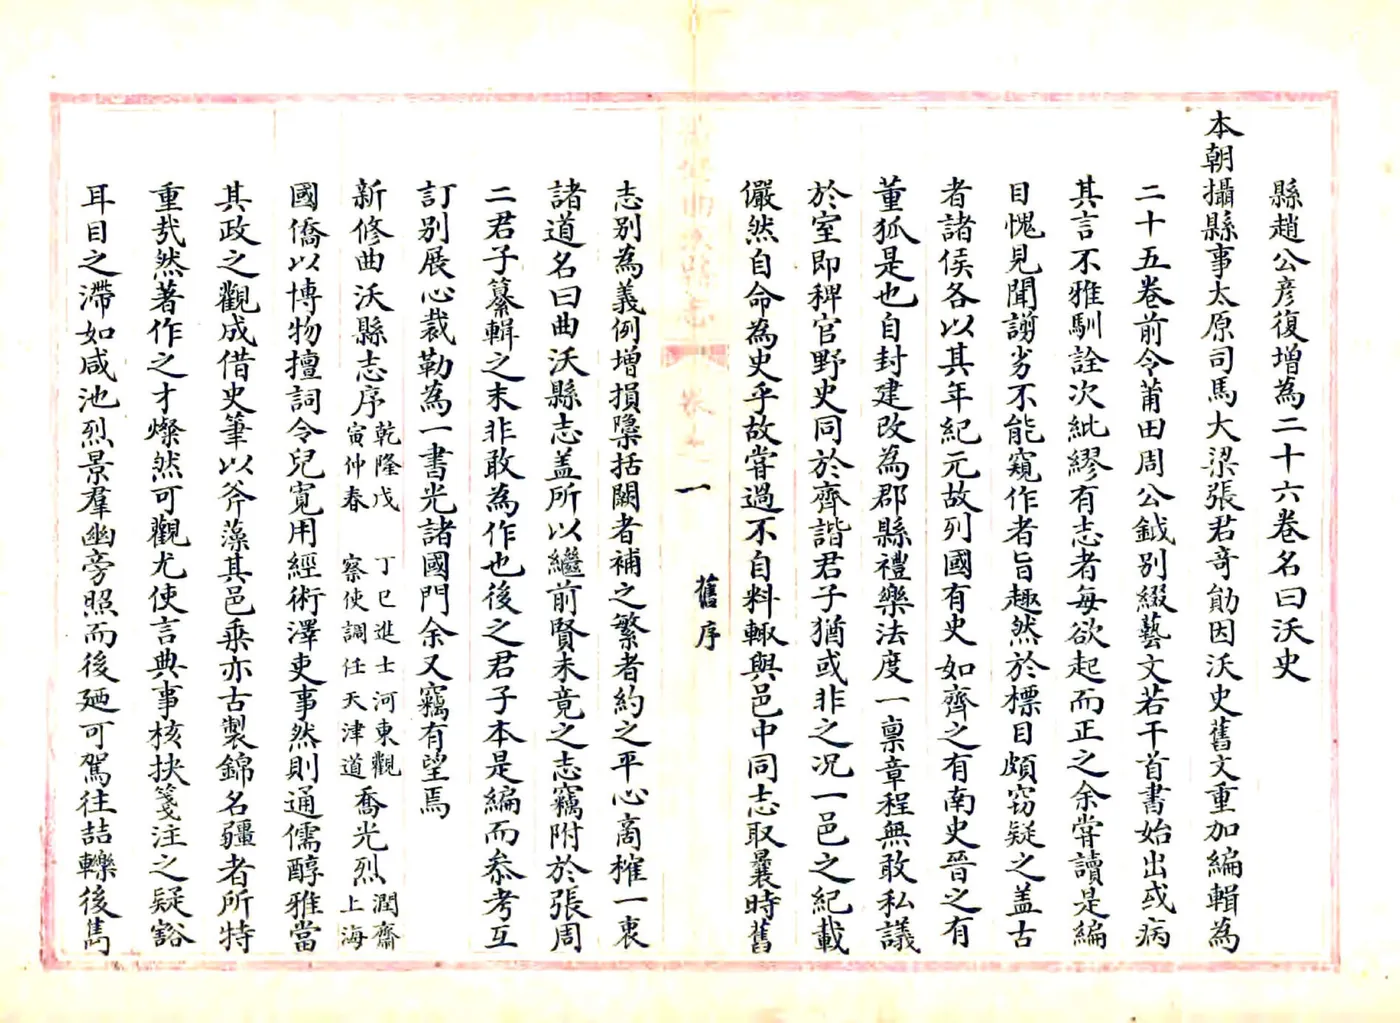 縣趙公彦復增為二十六卷名曰沃史
本朝攝縣事太原司馬大梁張君竒勛因沃史舊文重加編輯為
二十五卷前令莆田周公鉞别綴藝文若干首書始出或病
其言不雅馴詮次紕繆有志者每欲起而正之余甞讀是編
目愧見聞謭劣不能窺作者旨趣然於標目頗竊疑之盖古
者諸侯各以其年紀元故列國有史如齊之有南史晉之有
董狐是也自封建改為郡縣禮樂法度一禀章程無敢私議
於室即稗官野史同於齊諧君子猶或非之况一邑之紀載
儼然自命為史乎故甞過不自料輙與邑中同志取曩時舊
卷之
一
舊序
志别為義例增損櫽括闕者補之繁者約之平心商榷一衷
諸道名曰曲沃縣志盖所以繼前賢未竟之志竊附於張周
二君子纂輯之末非敢為作也後之君子本是編而叅考互
訂别展心裁勒為一書光諸國門余又竊有望焉
新修曲沃縣志序 乾隆戊寅仲春 丁巳進士河東觀察使調任天津道 喬光烈 潤齋上海
國僑以博物擅詞令兒寛用經術澤吏事然則通儒醇雅當
其政之觀成借史筆以斧藻其邑乗亦古製錦名疆者所特
重㦲然著作之才燦然可觀尤使言典事核抉箋注之疑豁
耳目之滯如咸池烈景羣幽旁照而後廼可駕往喆轢後雋